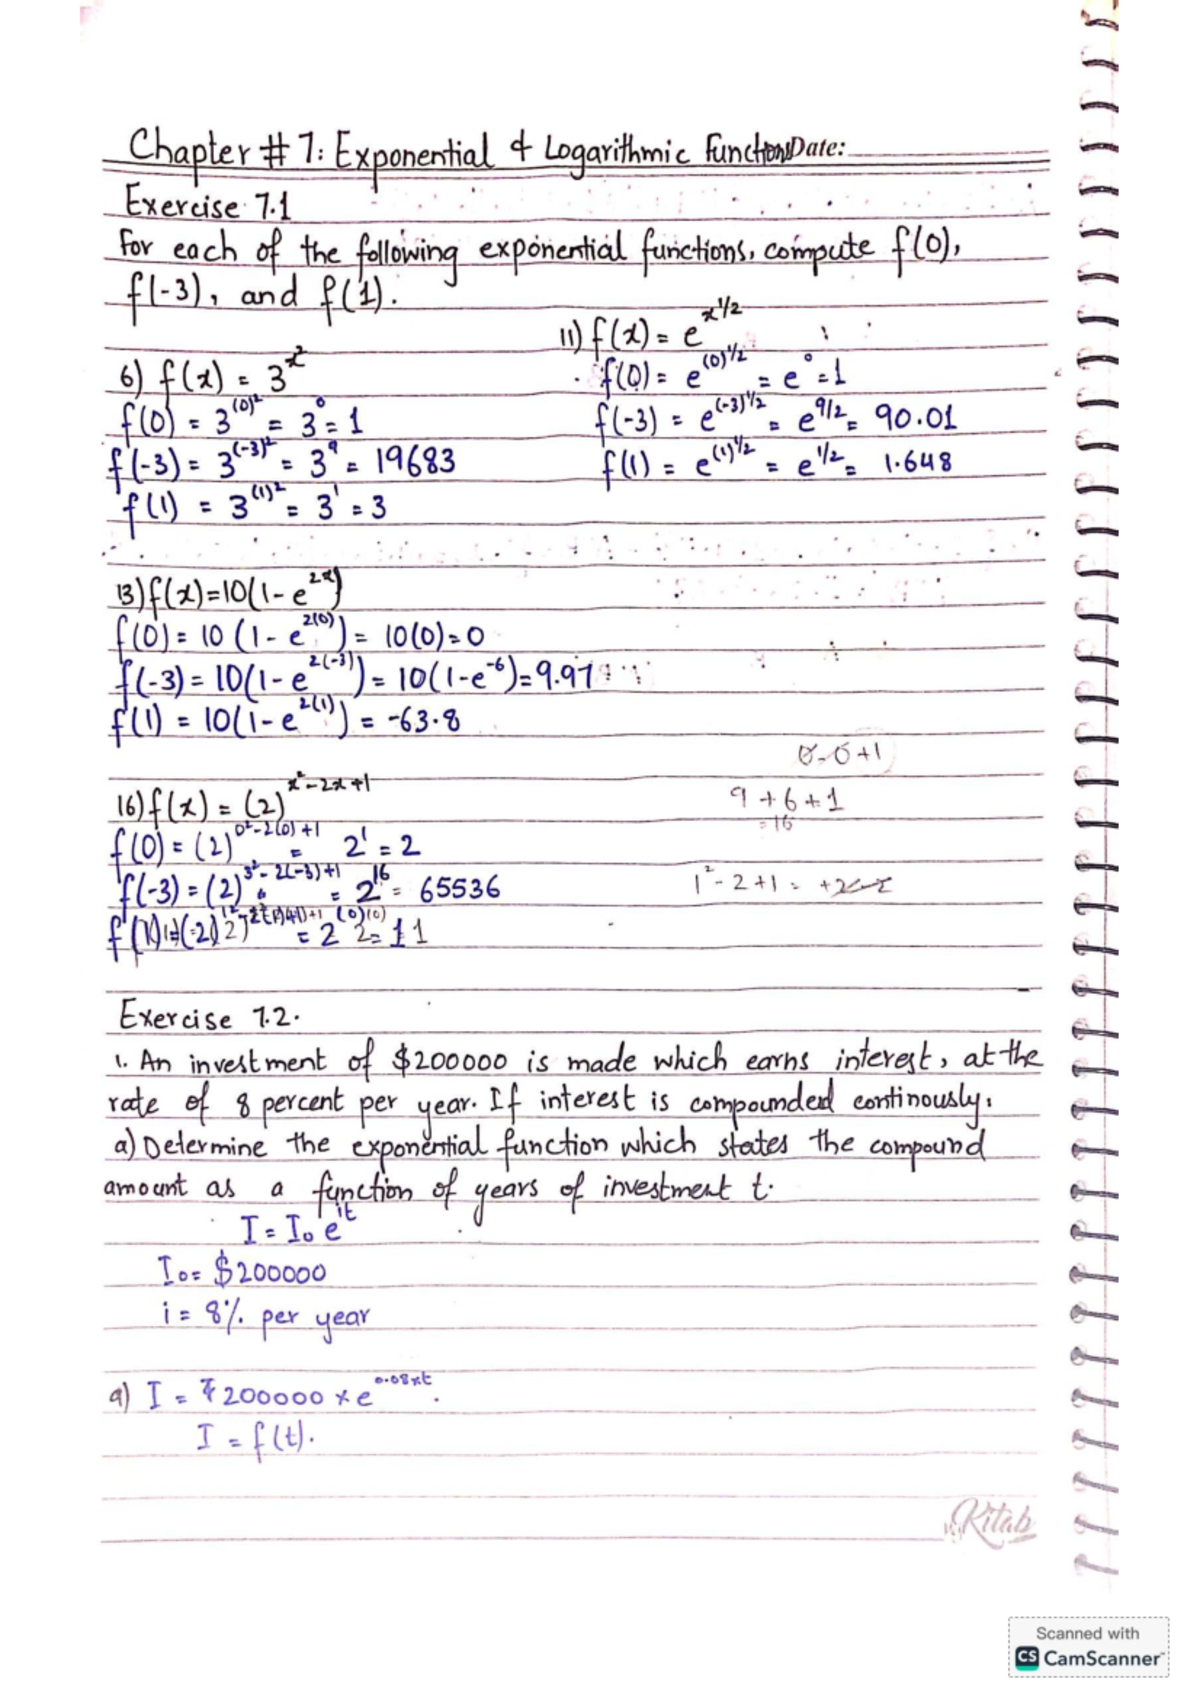 Chapter # 7: Exponential & Logarithmic Functions Date:
Exercise 7.1
For each of the following exponential functions, compute f(0),
f(-3), and f(1).
6) f(x) = 3^x²
f(0) = 3^(0)² = 3^0 = 1
f(-3) = 3^(-3)² = 3^9 = 19683
f(1) = 3^(1)² = 3^1 = 3
11) f(x) = e^x²/2
f(0) = e^(0)²/2 = e^0 = 1
f(-3) = e^(-3)²/2 = e^9/2 = 90.01
f(1) = e^(1)²/2 = e^1/2 = 1.648
13) f(x)=10(1-e^2x)
f(0) = 10 (1-e^2(0)) = 10(0)=0
f(-3) = 10(1-e^2(-3)) = 10(1-e^-6)=9.97
f(1) = 10(1-e^2(1)) = -63.8
0-0+1
16) f(x) = (2)^x²-2x+1
9+6+1
=16
f(0) = (2)^0²-2(0)+1 = 2^1 = 2
f(-3) = (2)^3²-2(-3)+1 = 2^16 = 65536
1²-2+1 =
Exercise 7.2.
1. An investment of $200000 is made which earns interest, at the
rate of 8 percent per year. If interest is compounded continously,
a) Determine the exponential function which states the compound
amount as a function of years of investment t.
I = I₀ e^it
I₀ = $200000
i = 8% per year
a) I = 200000 × e^0.08×t.
I = f(t).
Kitab
Scanned with
CS CamScanner